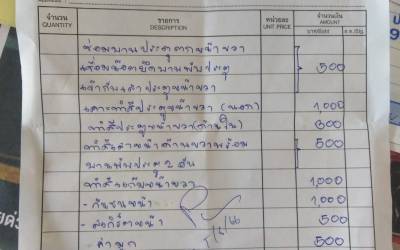 จำนวน QUANTITY รายการ DESCRIPTION หน่วยละ UNIT PRICE จำนวนเงิน AMOUNT
บาท/BAHT ส.ต./STG.
ซ่อมบานประตูตากหน้าขวา
เชื่อมน็อตยึดบานพับประตู 500
แก้กันเลาประตูหน้าขวา
เคาะทำสีประตูหน้าขวา (นอก) 1,000
ทำสีประตูหน้าขวา (ด้านใน) 300
ทำสีเสาหน้าด้านขวาพร้อม 500
บานพับประตู 2 อัน
ทำสีแก้มหน้าขวา 1,000
- กันชนหน้า 1,000
- หน้า 500
- 500